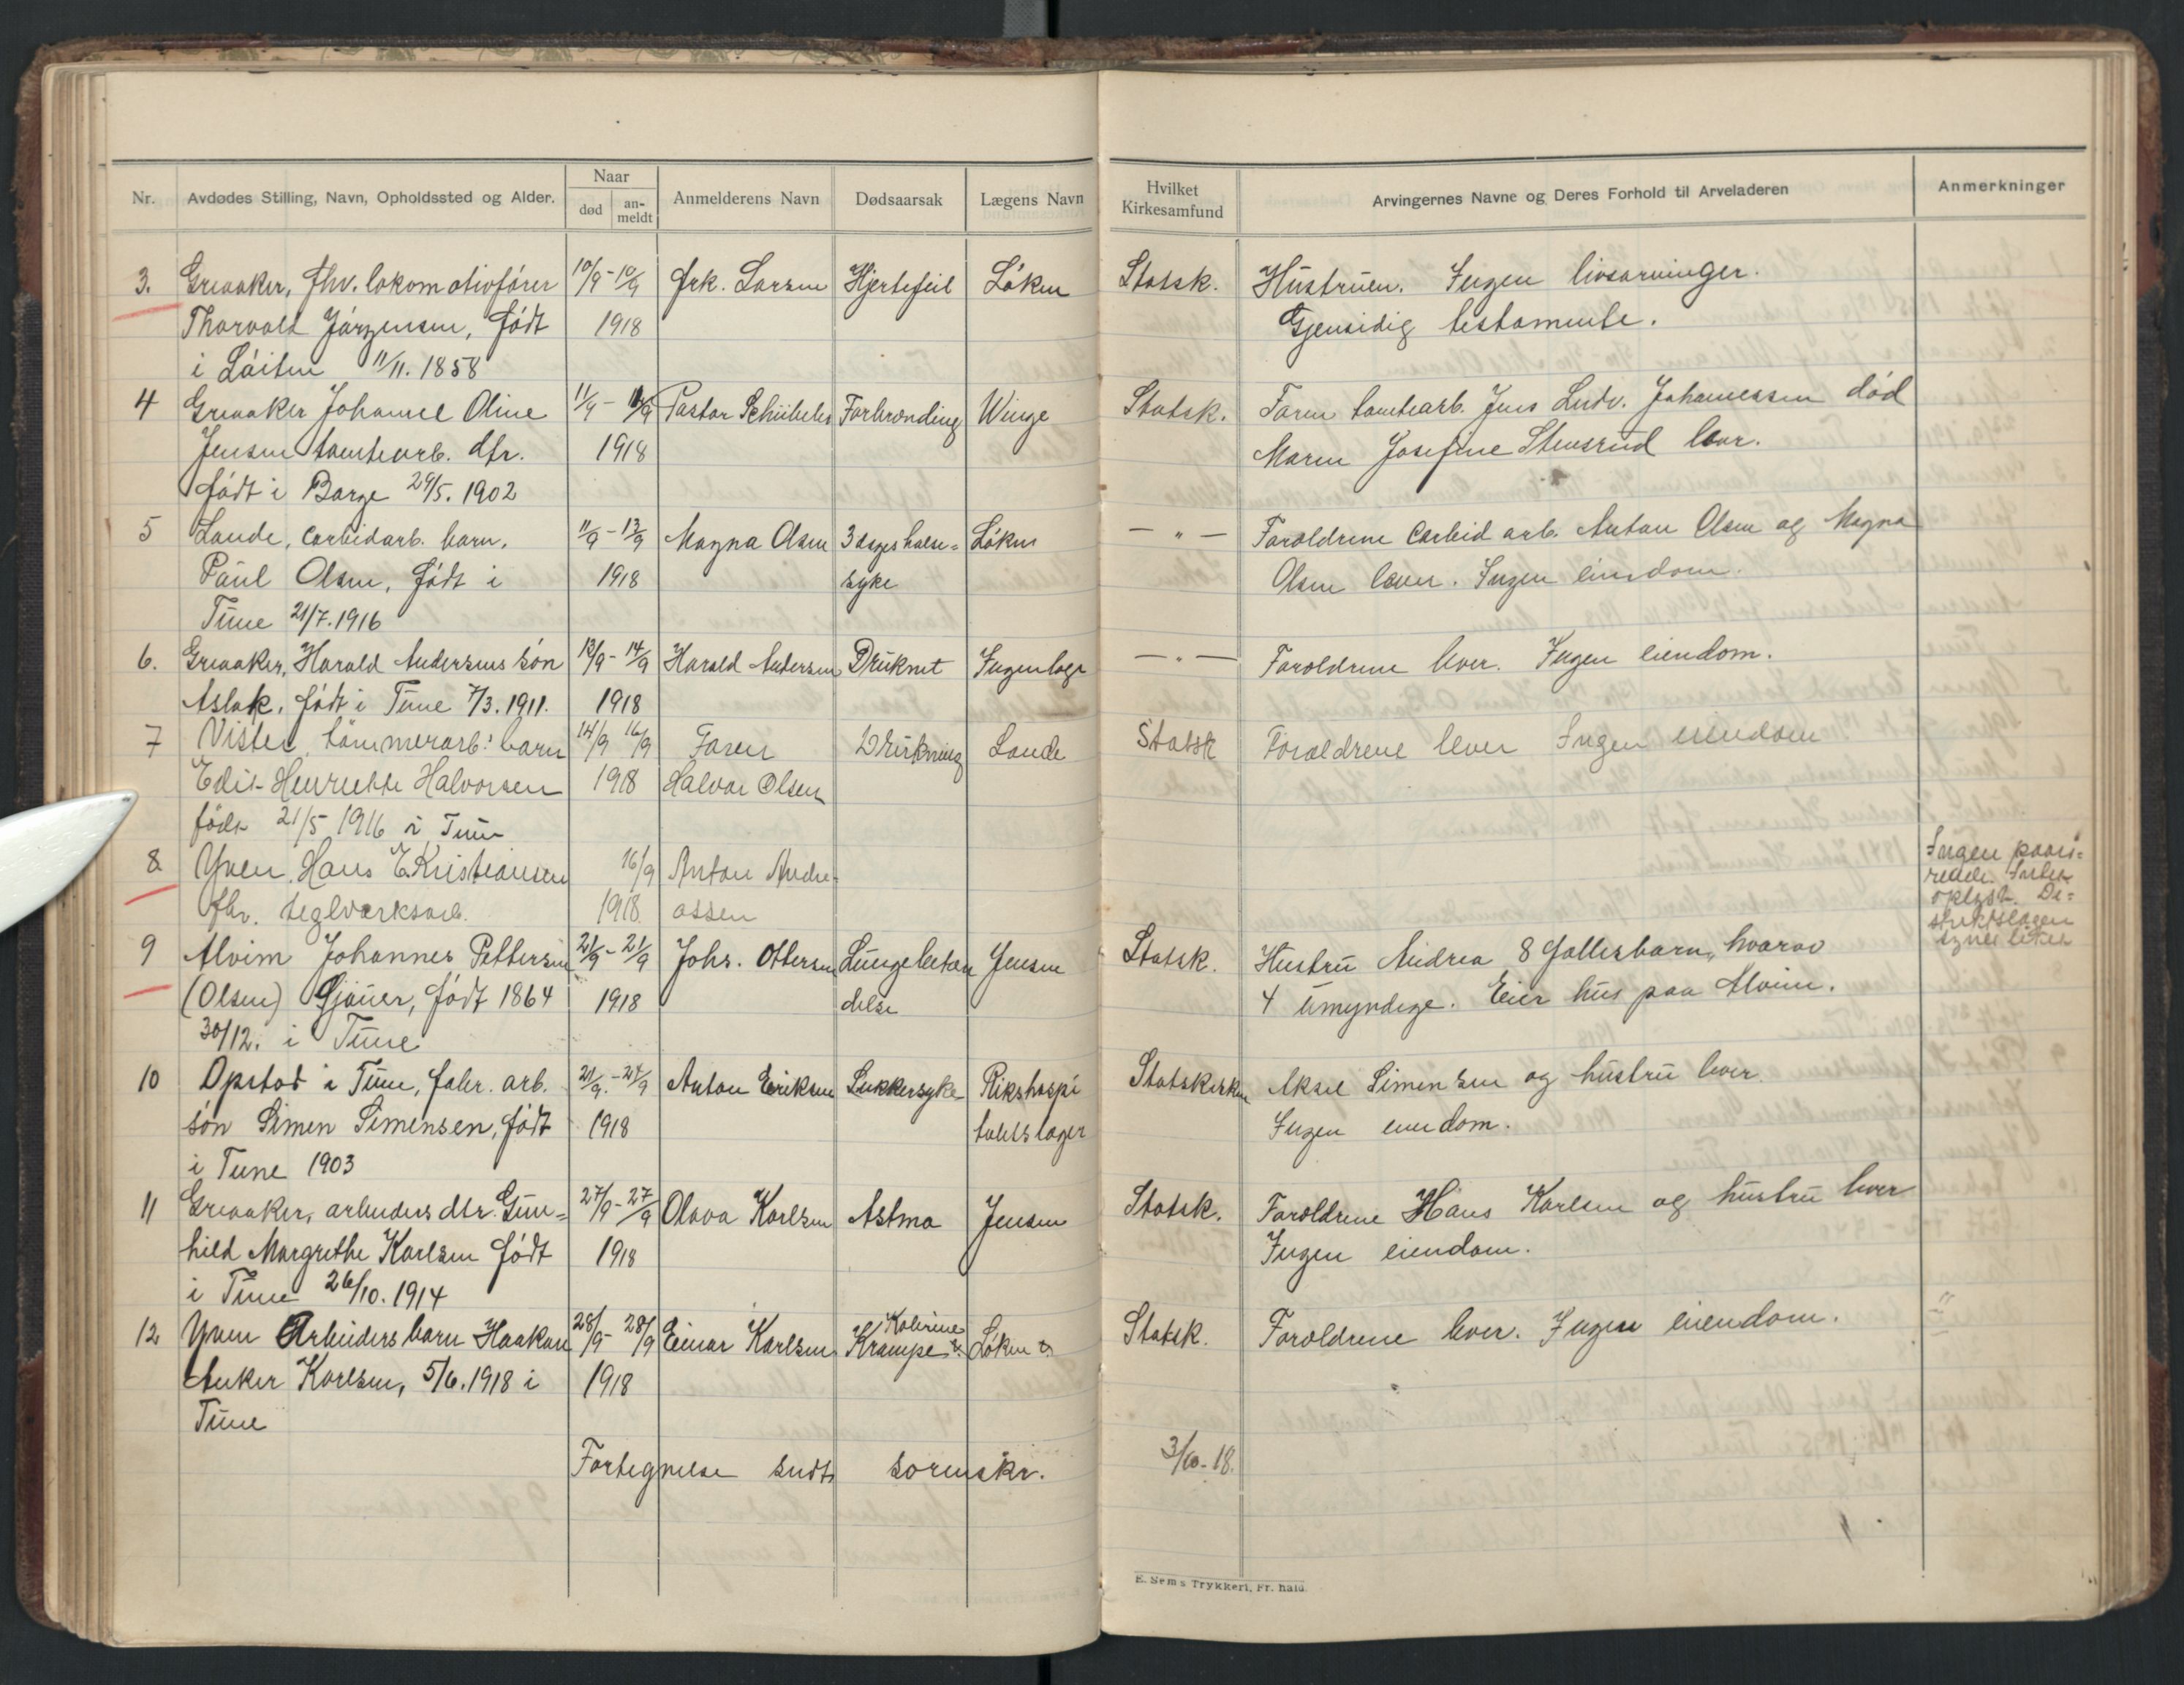 Nr. Avdødes Stilling, Navn, Opholdssted og Alder. Naar død an-meldt Anmelderens Navn Dødsaarsak Lægens Navn Hvilket Kirkesamfund Arvingernes Navne og Deres Forhold til Arveladeren Anmerkninger
3. Greaaker, fhv. lokomotivfører 10/9 - 10/9 frk. Larsen Hjertefeil Løken Statsk. Hustruen. Ingen livsarvinger.
Thorvald Jørgensen, født 1918 Gjensidig testamente.
i Løiten 11/11. 1858
4 Greaaker Johanne Oline 11/9 - 11/9 Pastor Schübeler Forbrænding Winge Statsk. Faren tomtearb. Jens Ludv. Johannessen død
Jensen tomtearb. dtr. 1918 Moren Josefine Stensrud lever.
født i Borge 29/5. 1902
5 Lande, Carbidarb. barn, 11/9 - 13/9 Magna Olsen 3 dages halse= Løken — " — Forældrene Carbid arb. Anton Olsen og Magna
Paul Olsen, født i 1918 syke Olsen lever. Ingen eiendom.
Tune 21/7. 1916
6. Greaaker, Harald Andersens søn 13/9 - 14/9 Harald Andersen Druknet Ingen læge — " — Forældrene lever. Ingen eiendom.
Aslak, født i Tune 7/3. 1911. 1918
7 Vister, tømmerarb. barn 14/9 16/9 Faren Drukning Lande Statsk Forældrene lever Ingen eiendom
Edit Henriette Halvorsen 1918 Halvor Olsen
født 21/5 1916 i Tune
8 Yven, Hans E. Kristiansen 16/9 Anton Andre= Ingen paarø=
fhv. teglværksarb. 1918. assen rede. Intet
oplyst. Di=
striktslægen
syner liket
9 Alvim Johannes Pettersen 21/9 - 21/9 Johs. Ottersen Lungebetæn Jensen Statsk. Hustru Andrea 8 fællesbarn, hvorav
(Olsen) Gjøuer, født 1864 1918 delse 4 umyndige. Eier hus paa Alvim.
30/12. i Tune
10 Opstad i Tune, fabr. arb. 21/9. - 24/9 Anton Eriksen Sukkersyke Rikshospi Statskirken Aksel Simensen og hustru lever
søn Simen Simensen, født 1918 talets læger Ingen eiendom.
i Tune 1903
11 Greaaker, arbeiders dtr. Gun= 27/9 - 27/9 Olava Karlsen Astma Jensen Statsk. Forældrene Hans Karlsen og hustru lever
hild Margrethe Karlsen født 1918 Ingen eiendom.
i Tune 26/10. 1914
12 Yven Arbeiders barn Haakon 28/9 - 28/9 Einar Karlsen Krampe Løken Statsk. Forældrene lever. Ingen eiendom.
Anker Karlsen, 5/6. 1918 i 1918
Tune
Fortegnelse sendt sorenskr. 3/10-18.
E. Sem's Trykkeri, Fr.hald.